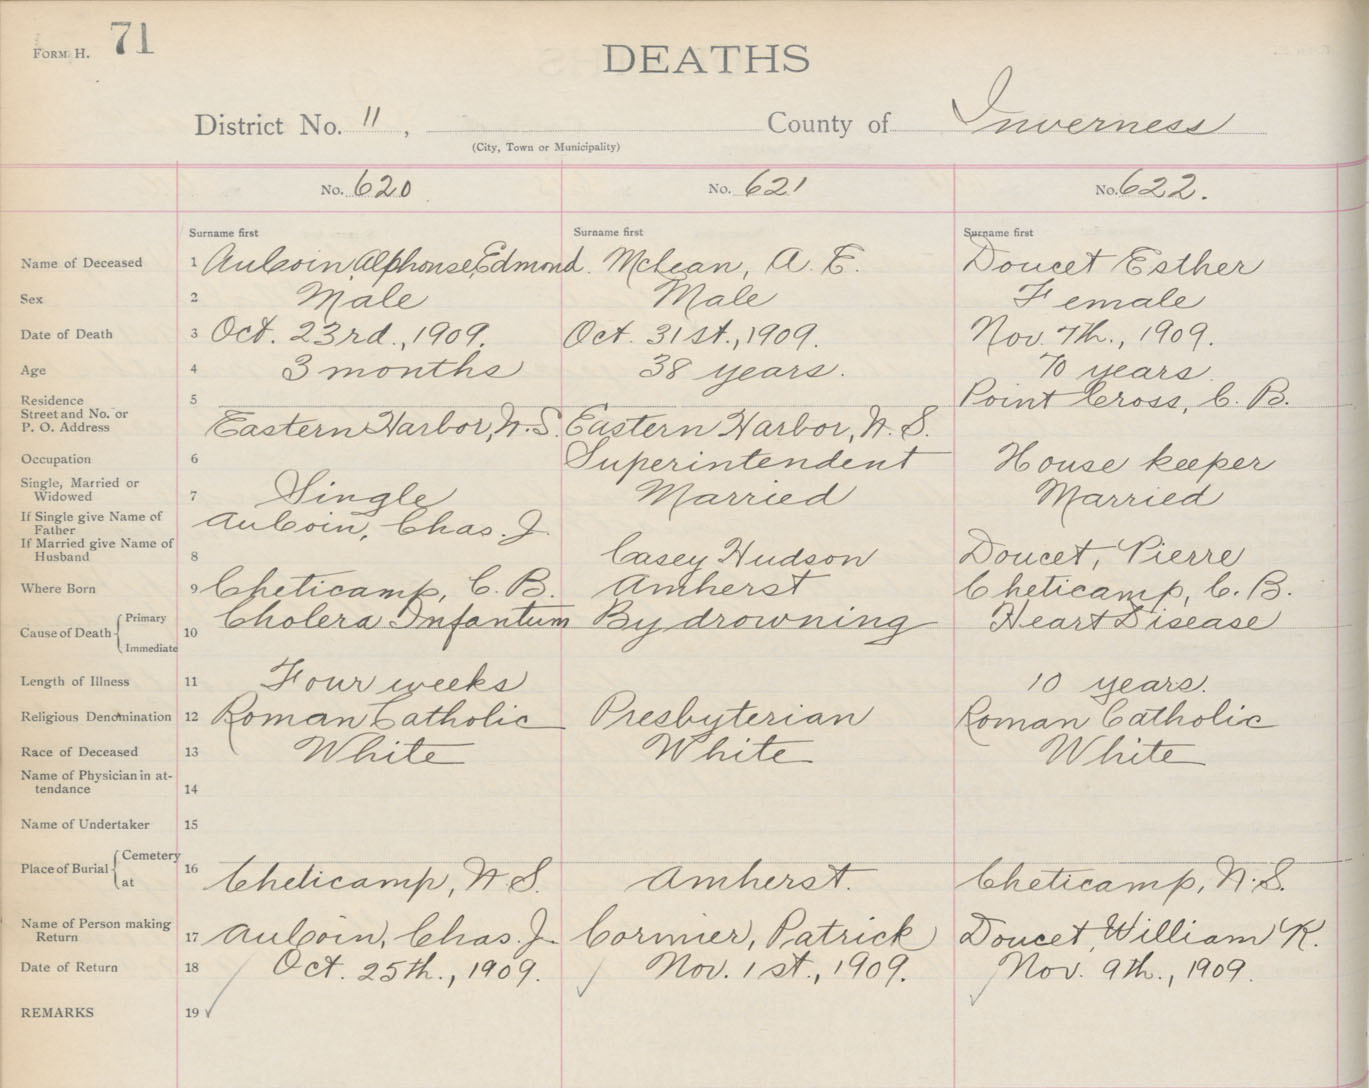 FORM H. 71
DEATHS
District No. 11, County of Inverness
(City, Town or Municipality)
No. 620 No. 621 No. 622.
Surname first Surname first Surname first
Name of Deceased 1 AuCoin, Alphonse, Edmond. McLean, A. E. Doucet Esther
Sex 2 Male Male Female
Date of Death 3 Oct. 23rd., 1909. Oct. 31st., 1909. Nov. 7th., 1909.
Age 4 3 months 38 years. 70 years.
Residence 5 Point Cross, C. B.
Street and No. or
P. O. Address Eastern Harbor, N. S. Eastern Harbor, N. S.
Occupation 6 Superintendent House keeper
Single, Married or
Widowed 7 Single Married Married
If Single give Name of
Father AuCoin, Chas. J.
If Married give Name of
Husband 8 Casey Hudson Doucet, Pierre
Where Born 9 Cheticamp, C. B. Amherst Cheticamp, C. B.
Cause of Death Primary 10 Cholera Infantum By drowning Heart Disease
Immediate
Length of Illness 11 Four weeks 10 years.
Religious Denomination 12 Roman Catholic Presbyterian Roman Catholic
Race of Deceased 13 White White White
Name of Physician in at-
tendance 14
Name of Undertaker 15
Place of Burial Cemetery 16
at Cheticamp, N. S. Amherst. Cheticamp, N. S.
Name of Person making
Return 17 AuCoin, Chas. J. Cormier, Patrick Doucet, William K.
Date of Return 18 Oct. 25th., 1909. Nov. 1st., 1909. Nov. 9th., 1909.
REMARKS 19